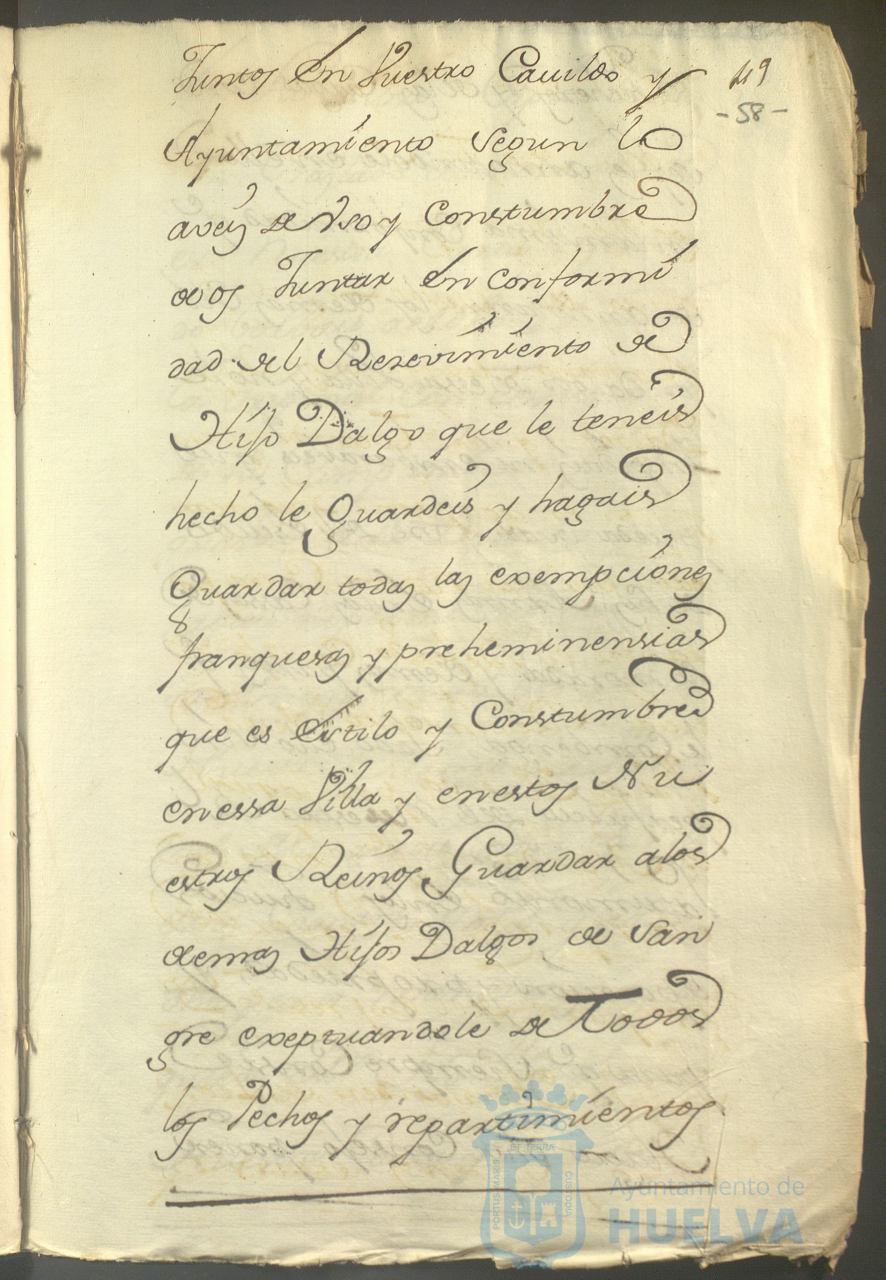 Juntos En Vuestro Cavildo y
49
-58-
Ayuntamiento segun lo
aveis de Vso y Constumbre
de os Juntar En conformi
dad del Rezevimiento de
Hijo Dalgo que le teneis
hecho le Guardeis y hagais
Guardar todas las exempciones
franquesas y preheminensias
que es Estilo y Constumbre
en essa Villa y en estos Nu
estros Reinos Guardar alos
demas Hijos Dalgos de San
gre exeptuandole de Todos
los Pechos y repartimientos
Ayuntamiento de
HUELVA